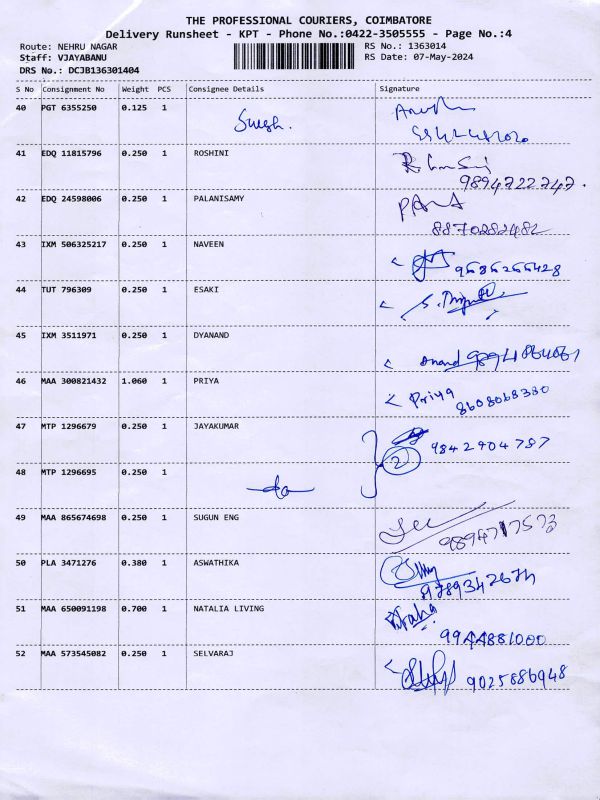 THE PROFESSIONAL COURIERS, COIMBATORE
Delivery Runsheet - KPT - Phone No.:0422-3505555 - Page No.:4
Route: NEHRU NAGAR
RS No.: 1363014
Staff: VJAYABANU
RS Date: 07-May-2024
DRS No.: DCJB136301404
S No Consignment No Weight PCS Consignee Details Signature
40 PGT 6355250 0.125 1
41 EDQ 11815796 0.250 1 ROSHINI
9894722247.
42 EDQ 24598006 0.250 1 PALANISAMY
8870282482
43 IXM 506325217 0.250 1 NAVEEN
44 TUT 796309 0.250 1 ESAKI
45 IXM 3511971 0.250 1 DYANAND
Anand
46 MAA 300821432 1.060 1 PRIYA Priya
8608068380
47 MTP 1296679 0.250 1 JAYAKUMAR 9842904787
2
48 MTP 1296695 0.250 1
do
49 MAA 865674698 0.250 1 SUGUN ENG
9894717573
50 PLA 3471276 0.380 1 ASWATHIKA
9789342674
51 MAA 650091198 0.700 1 NATALIA LIVING
9944881000
52 MAA 573545082 0.250 1 SELVARAJ
9025886948